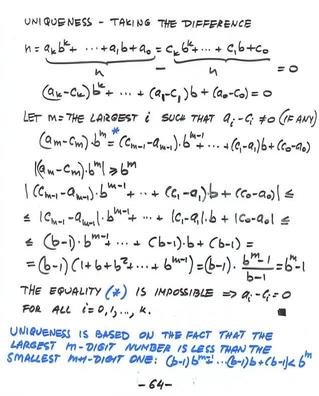 UNIQUENESS - TAKING THE DIFFERENCE
n = aₖbᵏ + ··· + a₁b + a₀ = cₖbᵏ + ··· + c₁b + c₀
n - n = 0
(aₖ-cₖ)bᵏ + ··· + (a₁-c₁)b + (a₀-c₀) = 0
LET m = THE LARGEST i SUCH THAT aᵢ-cᵢ ≠ 0 (IF ANY)
(aₘ-cₘ)·bᵐ =* (cₘ₋₁-aₘ₋₁)·bᵐ⁻¹ + ··· + (c₁-a₁)b + (c₀-a₀)
|(aₘ-cₘ)·bᵐ| ≥ bᵐ
|(cₘ₋₁-aₘ₋₁)·bᵐ⁻¹ + ··· + (c₁-a₁)b + (c₀-a₀)| ≤
≤ |cₘ₋₁-aₘ₋₁|·bᵐ⁻¹ + ··· + |c₁-a₁|·b + |c₀-a₀| ≤
≤ (b-1)·bᵐ⁻¹ + ··· + (b-1)·b + (b-1) =
= (b-1)(1+b+b²+···+bᵐ⁻¹) = (b-1)·(bᵐ-1)/(b-1) = bᵐ-1
THE EQUALITY (*) IS IMPOSSIBLE ⇒ aᵢ-cᵢ = 0
FOR ALL i = 0,1,..., k. ■
UNIQUENESS IS BASED ON THE FACT THAT THE
LARGEST m-DIGIT NUMBER IS LESS THAN THE
SMALLEST m+1-DIGIT ONE: (b-1)bᵐ⁻¹+··(b-1)b+(b-1)<bᵐ
-64-